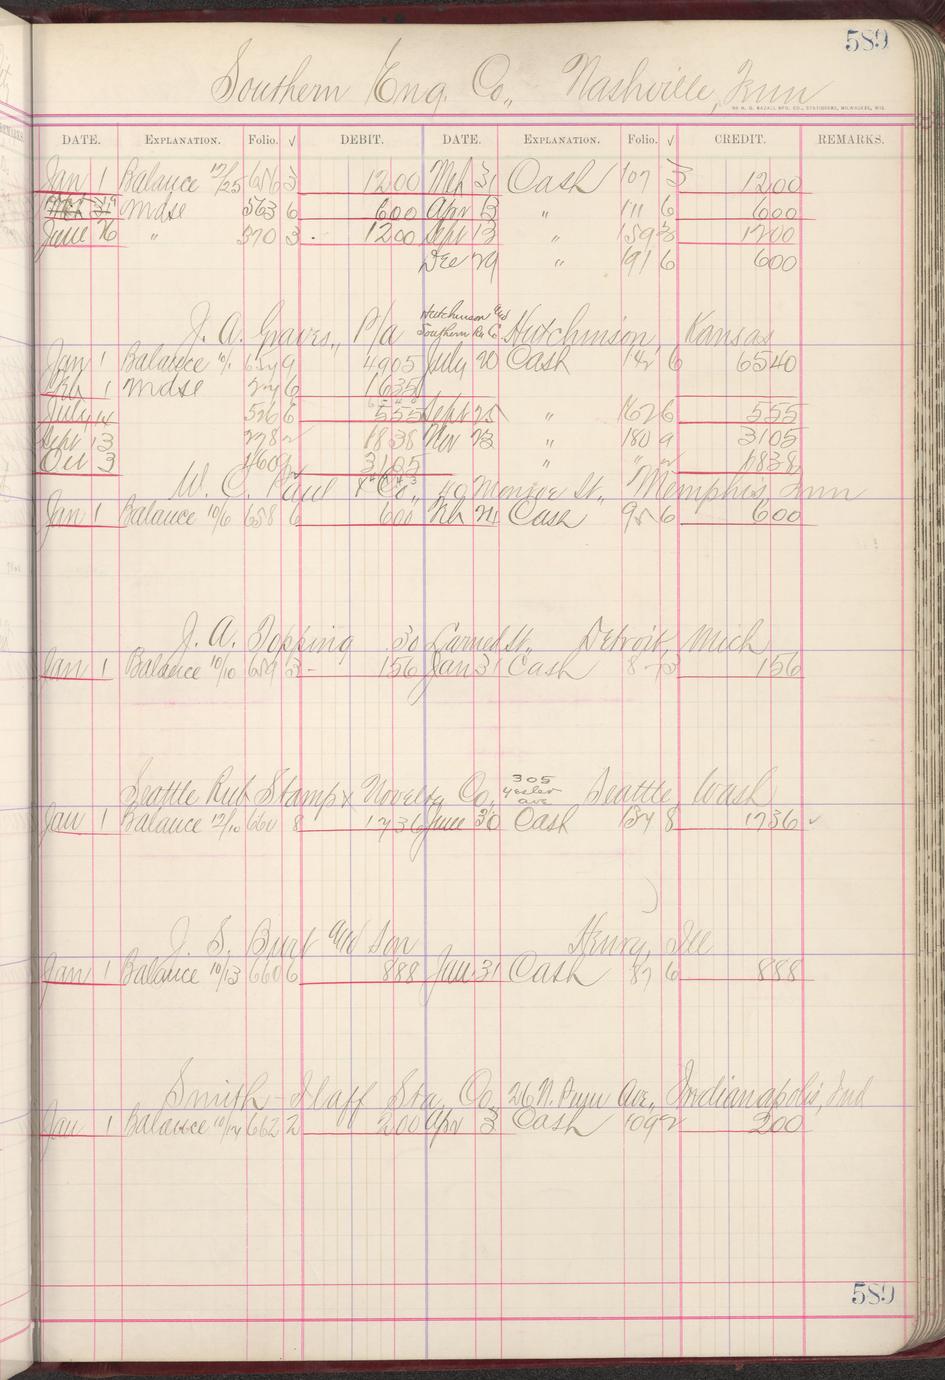 589
Southern Eng. Co., Nashville, Tenn
DATE. EXPLANATION. Folio. √ DEBIT. DATE. EXPLANATION. Folio. √ CREDIT. REMARKS.
Jan 1 Balance 12/25 656 3 1200 Mch 31 Cash 107 3 1200
Mdse 563 6 600 Apr 3 " 111 6 600
June 26 " 570 3 1200 Sept 13 " 159 3 1200
Dec 29 " 191 6 600
J. A. Graves, P/a Hutchinson and Southern Ry Co Hutchinson, Kansas
Jan 1 Balance 10/1 659 9 4905 July 20 Cash 142 6 6540
1 Mdse 6 1635
July 14 526 6 555 Sept 25 " 162 6 555
Sept 13 278 2 1838 Nov 23 " 180 9 3105
Oct 3 460 3105 " " 1838
W. C. Paul & Co., 49 Monroe St., Memphis, Tenn
Jan 1 Balance 10/6 658 6 600 Feb 21 Cash 95 6 600
J. A. Topping 30 Larned St., Detroit, Mich
Jan 1 Balance 10/10 659 3 156 Jan 31 Cash 87 3 156
Seattle Rub Stamp & Novelty Co., 305 Yesler ave Seattle, Wash
Jan 1 Balance 12/10 660 8 1736 June 30 Cash 134 8 1736 ✓
J. S. Burt and Son Henry, Ill
Jan 1 Balance 10/13 660 6 888 Jan 31 Cash 87 6 888
Smith-Haff Sta. Co., 26 N. Penn Ave., Indianapolis, Ind
Jan 1 Balance 10/14 662 2 200 Apr 3 Cash 109 2 200
589